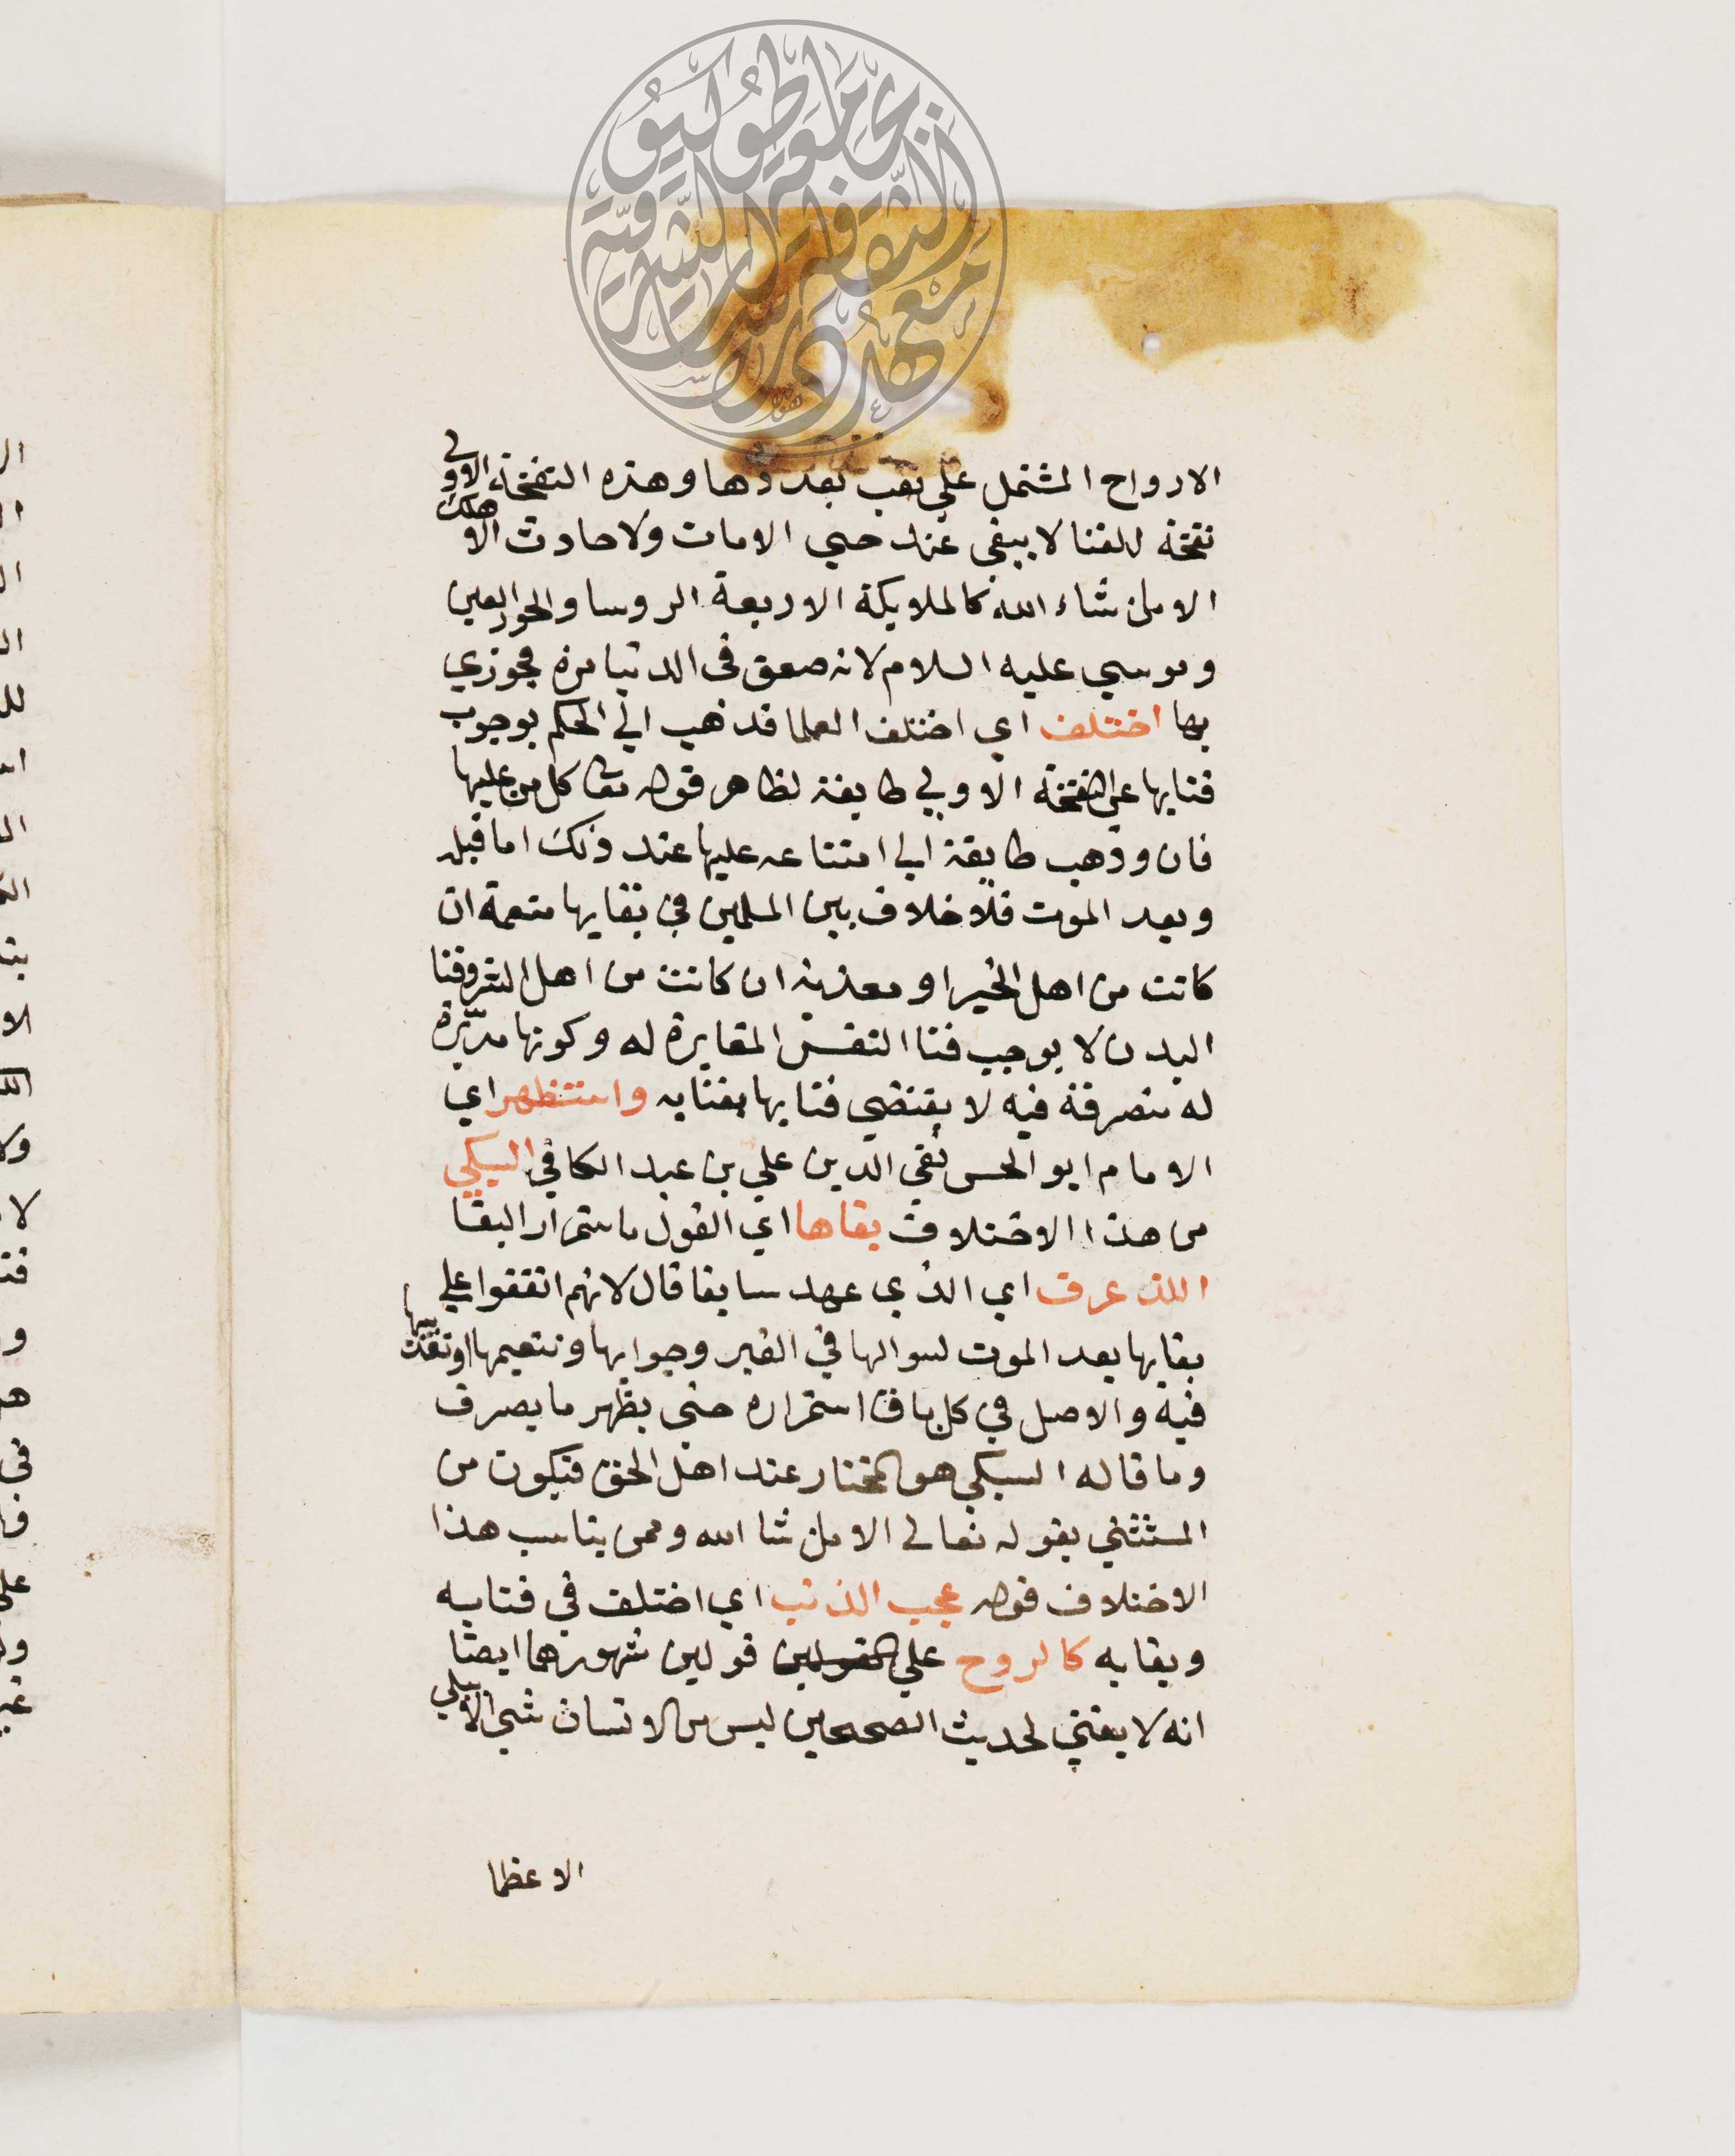 الارواح المشتمل علي ثقب بعددها وهذه النفخة الاولي
نفخة للفنا لا يبقي عندها حي الامات ولا حادث الا هلك
الا من شاء الله كالملايكة الاربعة الروسا والحور العين
وموسي عليه السلام لانه صعق في الدنيا مرة فجوزي
بها اختلف اي اختلف العلما فذهب الي الحكم بوجوب
فنايها عند النفخة الاولي طايفة لظاهر قوله تعا كل من عليها
فان وذهب طايفة الي امتناعه عليها عند ذلك اما قبله
وبعد الموت فلا خلاف بين المسلمين في بقايها منعمة ان
كانت من اهل الخير او معذبة ان كانت من اهل الشر وفنا
البدن لا يوجب فنا النفس المغايرة له وكونها مدبرة
له متصرفة فيه لا يقتضي فنايها بفنايه واستظهر اي
الامام ابو الحسن تقي الدين علي بن عبد الكافي السبكي
من هذا الاختلاف بقاها اي القول باستمرار البقا
اللذ عرف اي الذي عهد سابقا قال لانهم اتفقوا علي
بقايها بعد الموت لسوالها في القبر وجوابها وتنعيمها او تعذيبها
فيه والاصل في كل باق استمراره حتي يظهر ما يصرف
وما قاله السبكي هو المختار عند اهل الحق فتكون من
المستثني بقوله تعالي الا من شا الله وممن يناسب هذا
الاختلاف قوله عجب الذنب اي اختلف في فنايه
وبقايه كالروح علي القولين قولين شهورهما ايضا
انه لا يفني لحديث الصحيحين ليس من الانسان شي الا يبلي
الا عظما